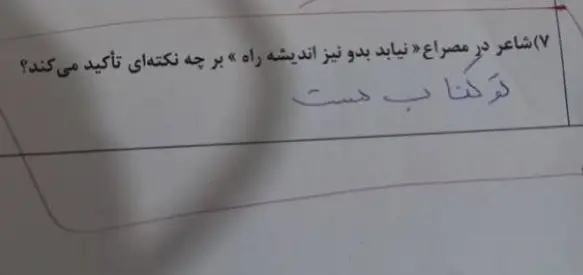 ۷) شاعر در مصراع « نیابد بدو نیز اندیشه راه » بر چه نکته‌ای تأکید می‌کند؟
تو کتاب هست